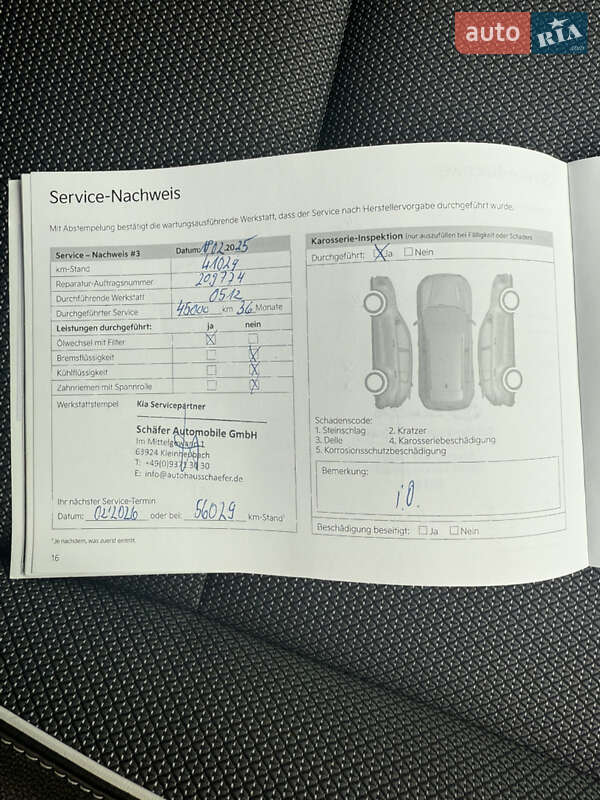 auto RIA .com
Service-Nachweis
Mit Abstempelung bestätigt die wartungsausführende Werkstatt, dass der Service nach Herstellervorgabe durchgeführt wurde.
Service – Nachweis #3 Datum: 02.2025
km-Stand 41029
Reparatur-Auftragsnummer 209774
Durchführende Werkstatt 0512
Durchgeführter Service 45000 km 36 Monate
Leistungen durchgeführt: ja nein
Ölwechsel mit Filter X
Bremsflüssigkeit X
Kühlflüssigkeit X
Zahnriemen mit Spannrolle X
Werkstattstempel
Kia Servicepartner
Schäfer Automobile GmbH
Im Mittelgewand 1
63924 Kleinheubach
E: info@autohausschaefer.de
Ihr nächster Service-Termin
Datum: 02.2026 oder bei: 56029 km-Stand¹
¹Je nachdem, was zuerst eintritt.
16
Karosserie-Inspektion (nur auszufüllen bei Fälligkeit oder Schaden)
Durchgeführt: X Ja Nein
Schadenscode:
1. Steinschlag 2. Kratzer
3. Delle 4. Karosseriebeschädigung
5. Korrosionsschutzbeschädigung
Bemerkung:
i.O.
Beschädigung beseitigt: Ja Nein